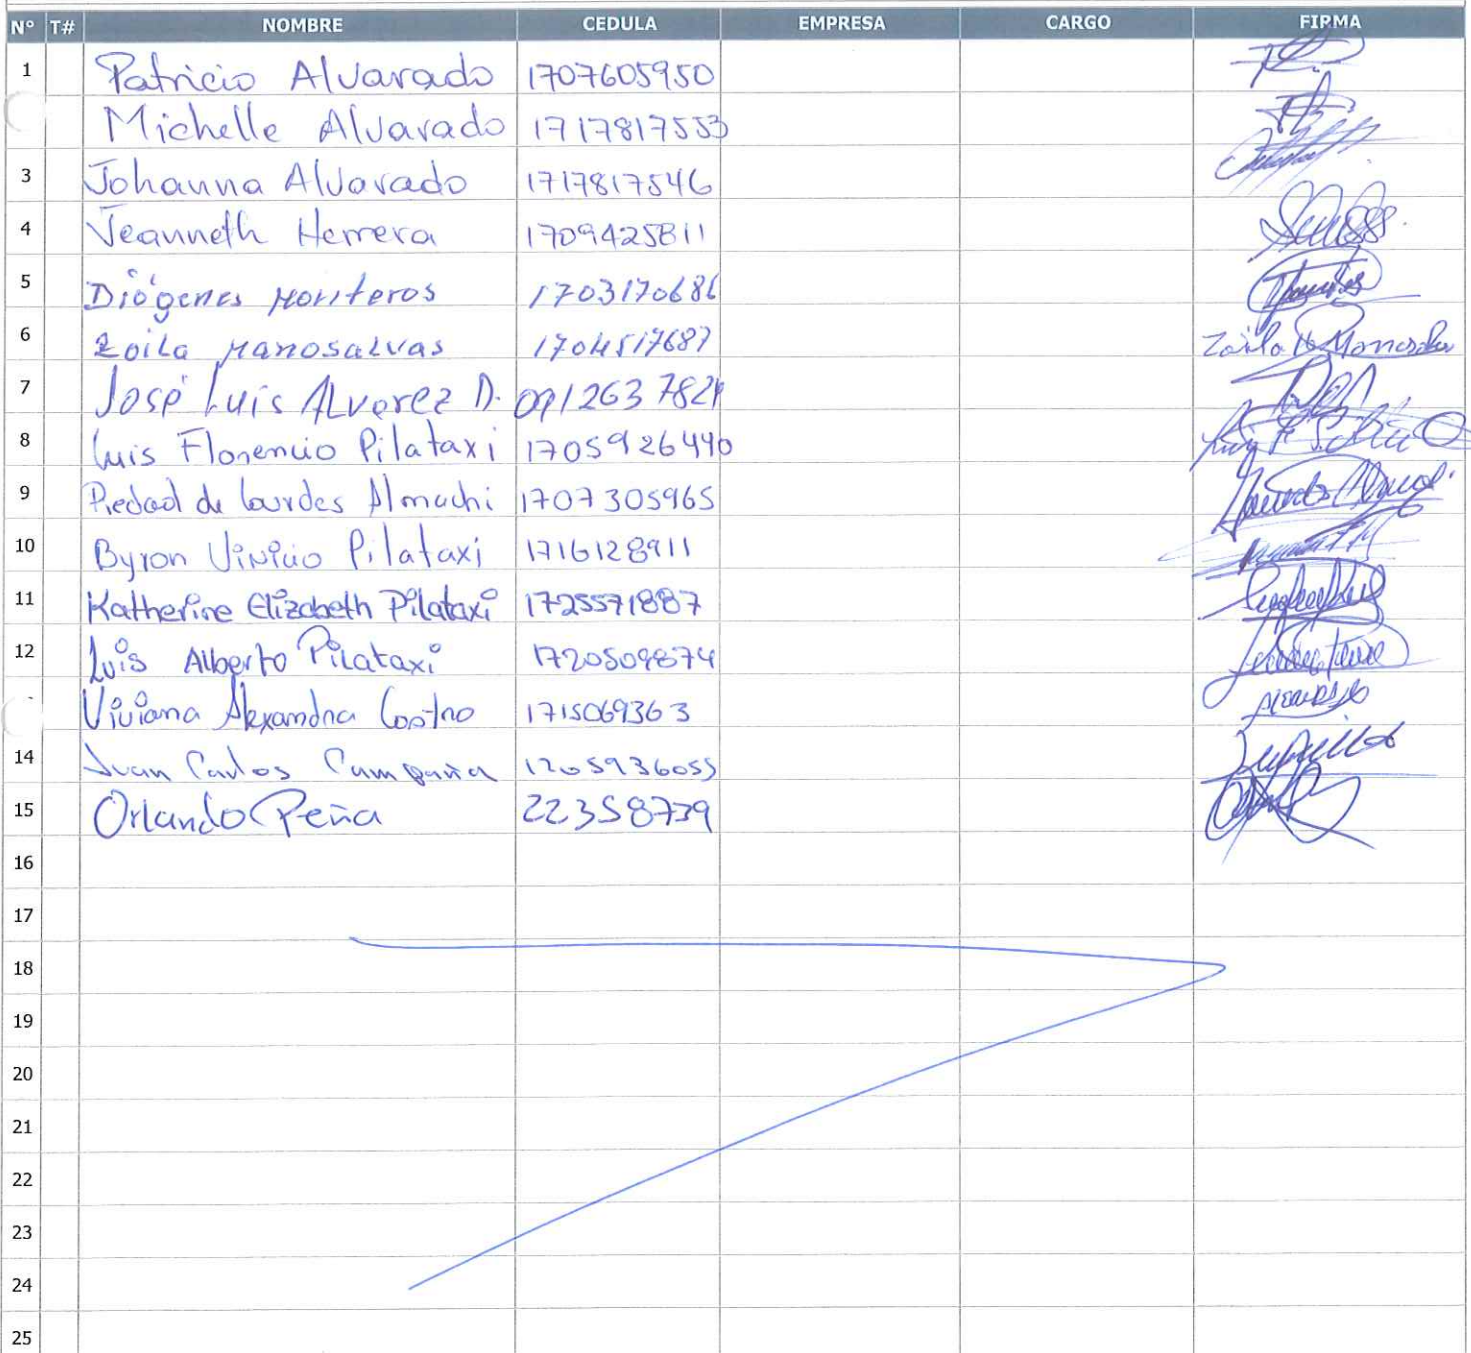 N° T# NOMBRE CEDULA EMPRESA CARGO FIRMA
1 Patricio Alvarado 1707605950
Michelle Alvarado 1717817553
3 Johanna Alvarado 1717817546
4 Jeanneth Herrera 1709425811
5 Diógenes Monteros 1703170686
6 Zoila Manosalvas 1704517687 Zoila
7 José Luis Alverez D. 0912637824
8 Luis Florencio Pilataxi 1705926440
9 Piedad de Lourdes Almachi 1707305965
10 Byron Vinicio Pilataxi 1716128911
11 Katherine Elizabeth Pilataxi 1725571887
12 Luis Alberto Pilataxi 1720509874
Viviana Alexandra Castro 1715069363
14 Juan Carlos Campaña 1205936055
15 Orlando Peña 22358739
16
17
18
19
20
21
22
23
24
25